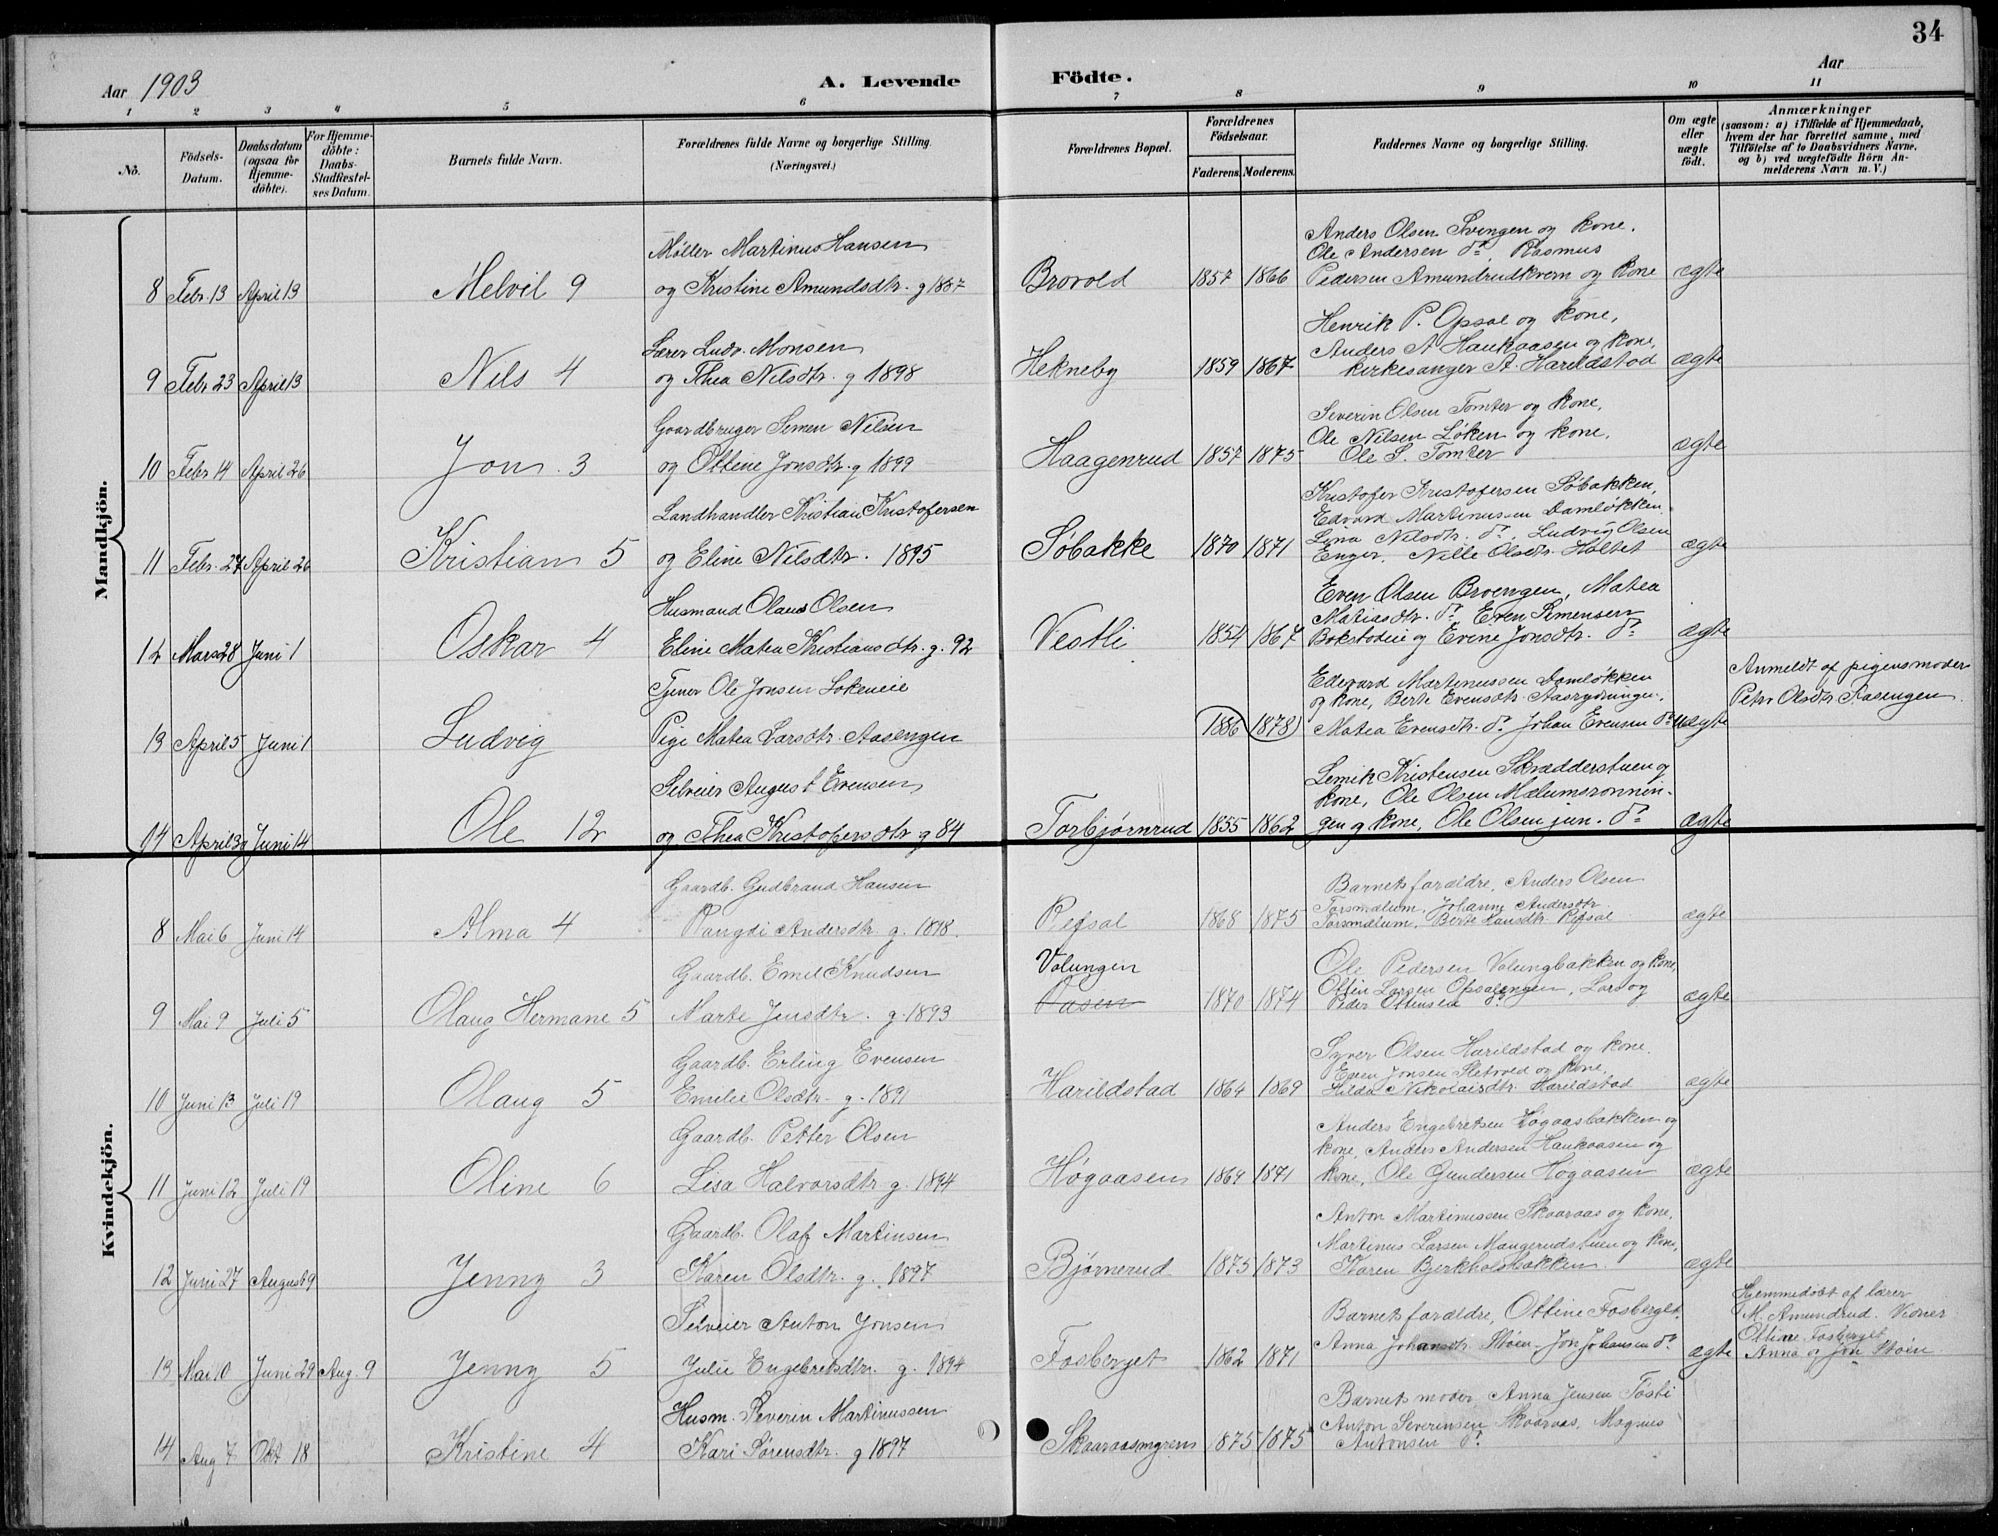 34
Aar 1903
A. Levende Födte.
Aar
1 2 3 4 5 6 7 8 9 10 11
No.
Födsels-Datum.
Daabsdatum (ogsaa for Hjemme-döbte).
For Hjemme-döbte: Daabs-Stadfæstel-ses Datum.
Barnets fulde Navn.
Forældrenes fulde Navne og borgerlige Stilling. (Næringsvei.)
Forældrenes Bopæl.
Forældrenes Födselsaar.
Faderens. Moderens.
Faddernes Navne og borgerlige Stilling.
Om ægte eller uægte födt.
Anmærkninger
(saasom: a) i Tilfælde af Hjemmedaab, hvem der har forrettet samme, med Tilföielse af to Daabsvidners Navne, og b) ved uægtefödte Börn An-melderens Navn m. V.)
Mandkjön.
Möller Martinus Hansen
Anders Olsen Svingen og kone.
Ole Andersen do, Rasmus
8 Febr. 13 April 13 Melvil 9 og Kristine Amundsdtr. g 1887 Brovold 1857 1866 Pedersen Amundrudkvern og kone ægte
Lærer Ludv. Monsen
Henrik P. Opsal og kone,
Anders A Haukaasen og kone,
9 Febr 23 April 13 Nils 4 og Thea Nilsdtr. g 1898 Hekneby 1859 1867 kirkesanger A. Harildstad ægte
Gaardbruger Simen Nilsen
Severin Olsen Tomter og kone,
Ole Nilsen Løken og kone,
10 Febr 14 April 26 Jon 3 og Ottine Jonsdtr. g 1899 Haagenrud 1857 1875 Ole S. Tomter ægte
Landhandler Kristian Kristofersen
Kristofer Kristofersen Søbakken,
Edvard Martinussen Damløkken
Lina Nilsdtr. do, Ludvig Olsen
11 Febr. 27 April 26 Kristian 5 og Eline Nilsdtr. 1895 Søbakke 1870 1871 Enger, Nille Olsdtr. Holtet ægte
Husmand Olaus Olsen
Even Olsen Broengen, Matea
Matiasdtr. do Even Simensen
12 Mars 28 Juni 1 Oskar 4 Eline Matea Kristiansdtr. g. 92 Vestli 1854 1867 og Evine Jonsdtr. do ægte
Tjener Ole Jonsen Lokeneie
Edevard Martinussen Damløkken
og kone, Berte Evensdtr.
Anmeldt af pigens moder
Petr. Olsdtr. Aasengen
13 April 5 Juni 1 Ludvig Pige Matea Larsdtr. Aasengen 1886 1878 Matea Evensdtr. do Johan Evensen do uægte
Selveier August Evensen
Lemik Kristensen Skrædderstuen og
kone, Ole Olsen Mælumsrønnin-
14 April 30 Juni 14 Ole 12 og Thea Kristofersdtr g 84 Torbjørnrud 1855 1862 gen og kone, Ole Olsen jun. do ægte
Kvindekjön.
Gaardb. Gudbrand Hansen
Barnets forældre, Anders Olsen
Torsmælum, Johanne Andersdtr.
8 Mai 6 Juni 14 Alma 4 Rangdi Andersdtr g. 1898. Refsal 1868 1875 Torsmælum, Berte Hansdtr. Refsal ægte
Gaardb. Emil Knudsen
Volungen
Ole Pedersen Volungbakken og kone,
Ottin Larsen Opsalengen, Lars og
9 Mai 9 Juli 5 Olaug Hermane 5 Marte Jensdtr. g. 1893 Aasen 1870 1874 Peder Ottinsen do ægte
Gaardb. Erling Evensen
Syver Olsen Harildstad og kone.
Even Jonsen Sletvold og kone,
10 Juni 13 Juli 19 Olaug 5 Emilie Olsdtr. g. 1891 Harildstad 1864 1869 Hilda Nikolaisdtr. Harildstad ægte
Gaardb. Petter Olsen
Anders Engebretsen Høgaasbakken og
kone, Anders Andersen Haukaasen og
11 Juni 12 Juli 19 Oline 6 Lisa Halvorsdtr g. 1894 Høgaasen 1864 1871 kone, Ole Gundersen Høgaasen ægte
Gaardb. Olaf Martinsen
Anton Martinussen Skaaraas og kone,
Martinus Larsen Mangerudstuen og kone,
12 Juni 27 August 9 Jenny 3 Karen Olsdtr. g. 1897 Bjørnerud 1875 1873 Karen Bjerkholsbakken ægte
Selveier Anton Jonsen
Barnets forældre, Ottine Fosberget,
Hjemmedøbt af lærer
M. Amundrud. Vidner
Ottine Fosberget
13 Mai 10 Juni 29 Aug. 9 Jenny 5 Julie Engebretsdtr. g. 1894 Fosberget 1862 1871 Anna Johansdtr. Moen Jon Johansen do ægte Anna og Jon Moen
Husm. Severin Martinussen
Barnets moder Anna Jensen
Anton Severinsen Skaaraas, Magnus
14 Aug 7 Okt 18 Kristine 4 Kari Sørensdtr. g 1897 Skaaraasmyren 1875 1875 Antonsen do